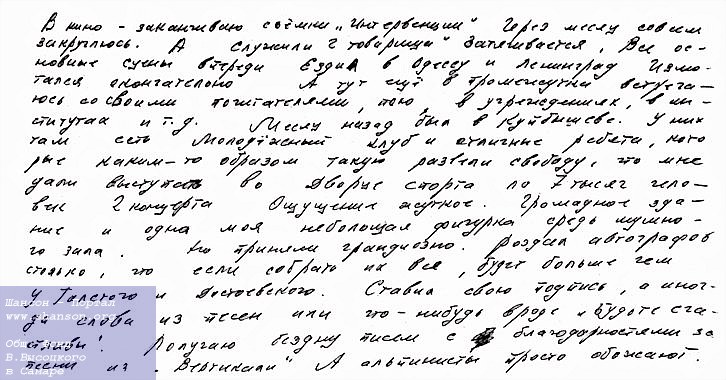 В кино – заканчиваю съёмки „Интервенции“ Через месяц совсем
закруглюсь. А „Служили 2 товарища“ Затягивается, Все ос-
новные сцены впереди Ездил в Одессу и Ленинград Измо-
тался окончательно А тут ещё в промежутки встреча-
юсь со своими почитателями, пою, в учреждениях, в ин-
ститутах и т.д. Месяц назад был в Куйбышеве. У них
там есть Молодёжный клуб и отличные ребята, кото
рые каким-то образом такую развели свободу, что мне
дали выступать во Дворце спорта по 7 тысяч чело-
век 2 концерта Ощущение жуткое. Громадное зда-
ние и одна моя небольшая фигурка средь шумно-
го зала. Но приняли грандиозно. Роздал автографов
столько, что если собрать их все, будет больше чем
у Толстого и Достоевского. Ставил свою подпись, а иног-
да слова из песен или что-нибудь вроде „Будьте сча-
стливы!“ Получаю бездну писем с благодарностями за
песни из „Вертикали“ А альпинисты просто обожают.
Шансон - Портал
www.shanson.org
В.Высоцкого
в Самаре